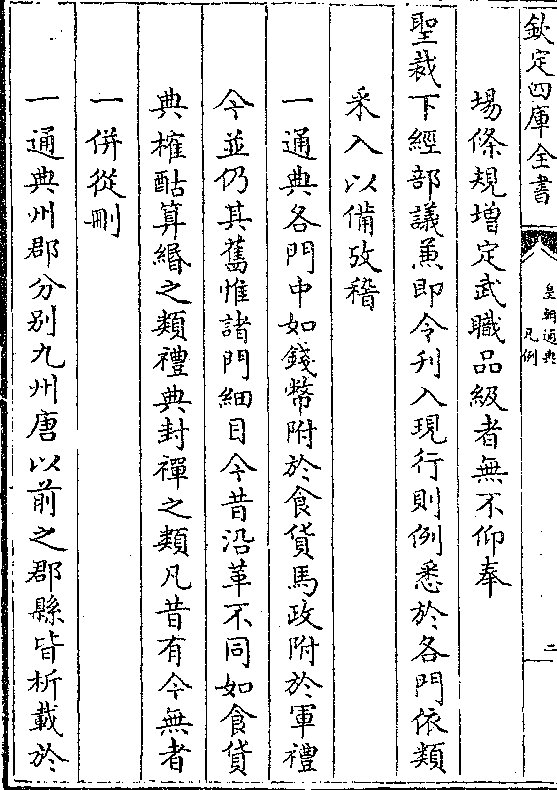 欽定四庫全書
皇朝通典
凡例
二
場條規增定武職品級者無不仰奉
聖裁下經部議兼即令刋入現行則例悉於各門依類
采入以備攷稽
一通典各門中如錢幣附於食貨馬政附於軍禮
今並仍其舊惟諸門細目今昔沿革不同如食貨
典榷酤算緡之類禮典封禪之類凡昔有今無者
一併從刪
一通典州郡分别九州唐以前之郡縣皆析載於